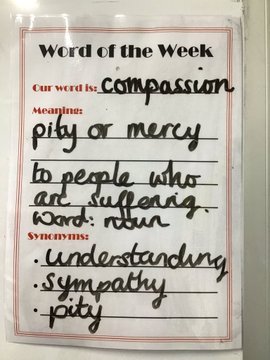 Word of the Week
Our word is: compassion
Meaning:
pity or mercy
to people who
are suffering.
Word: noun
Synonyms:
· understanding
· sympathy
· pity